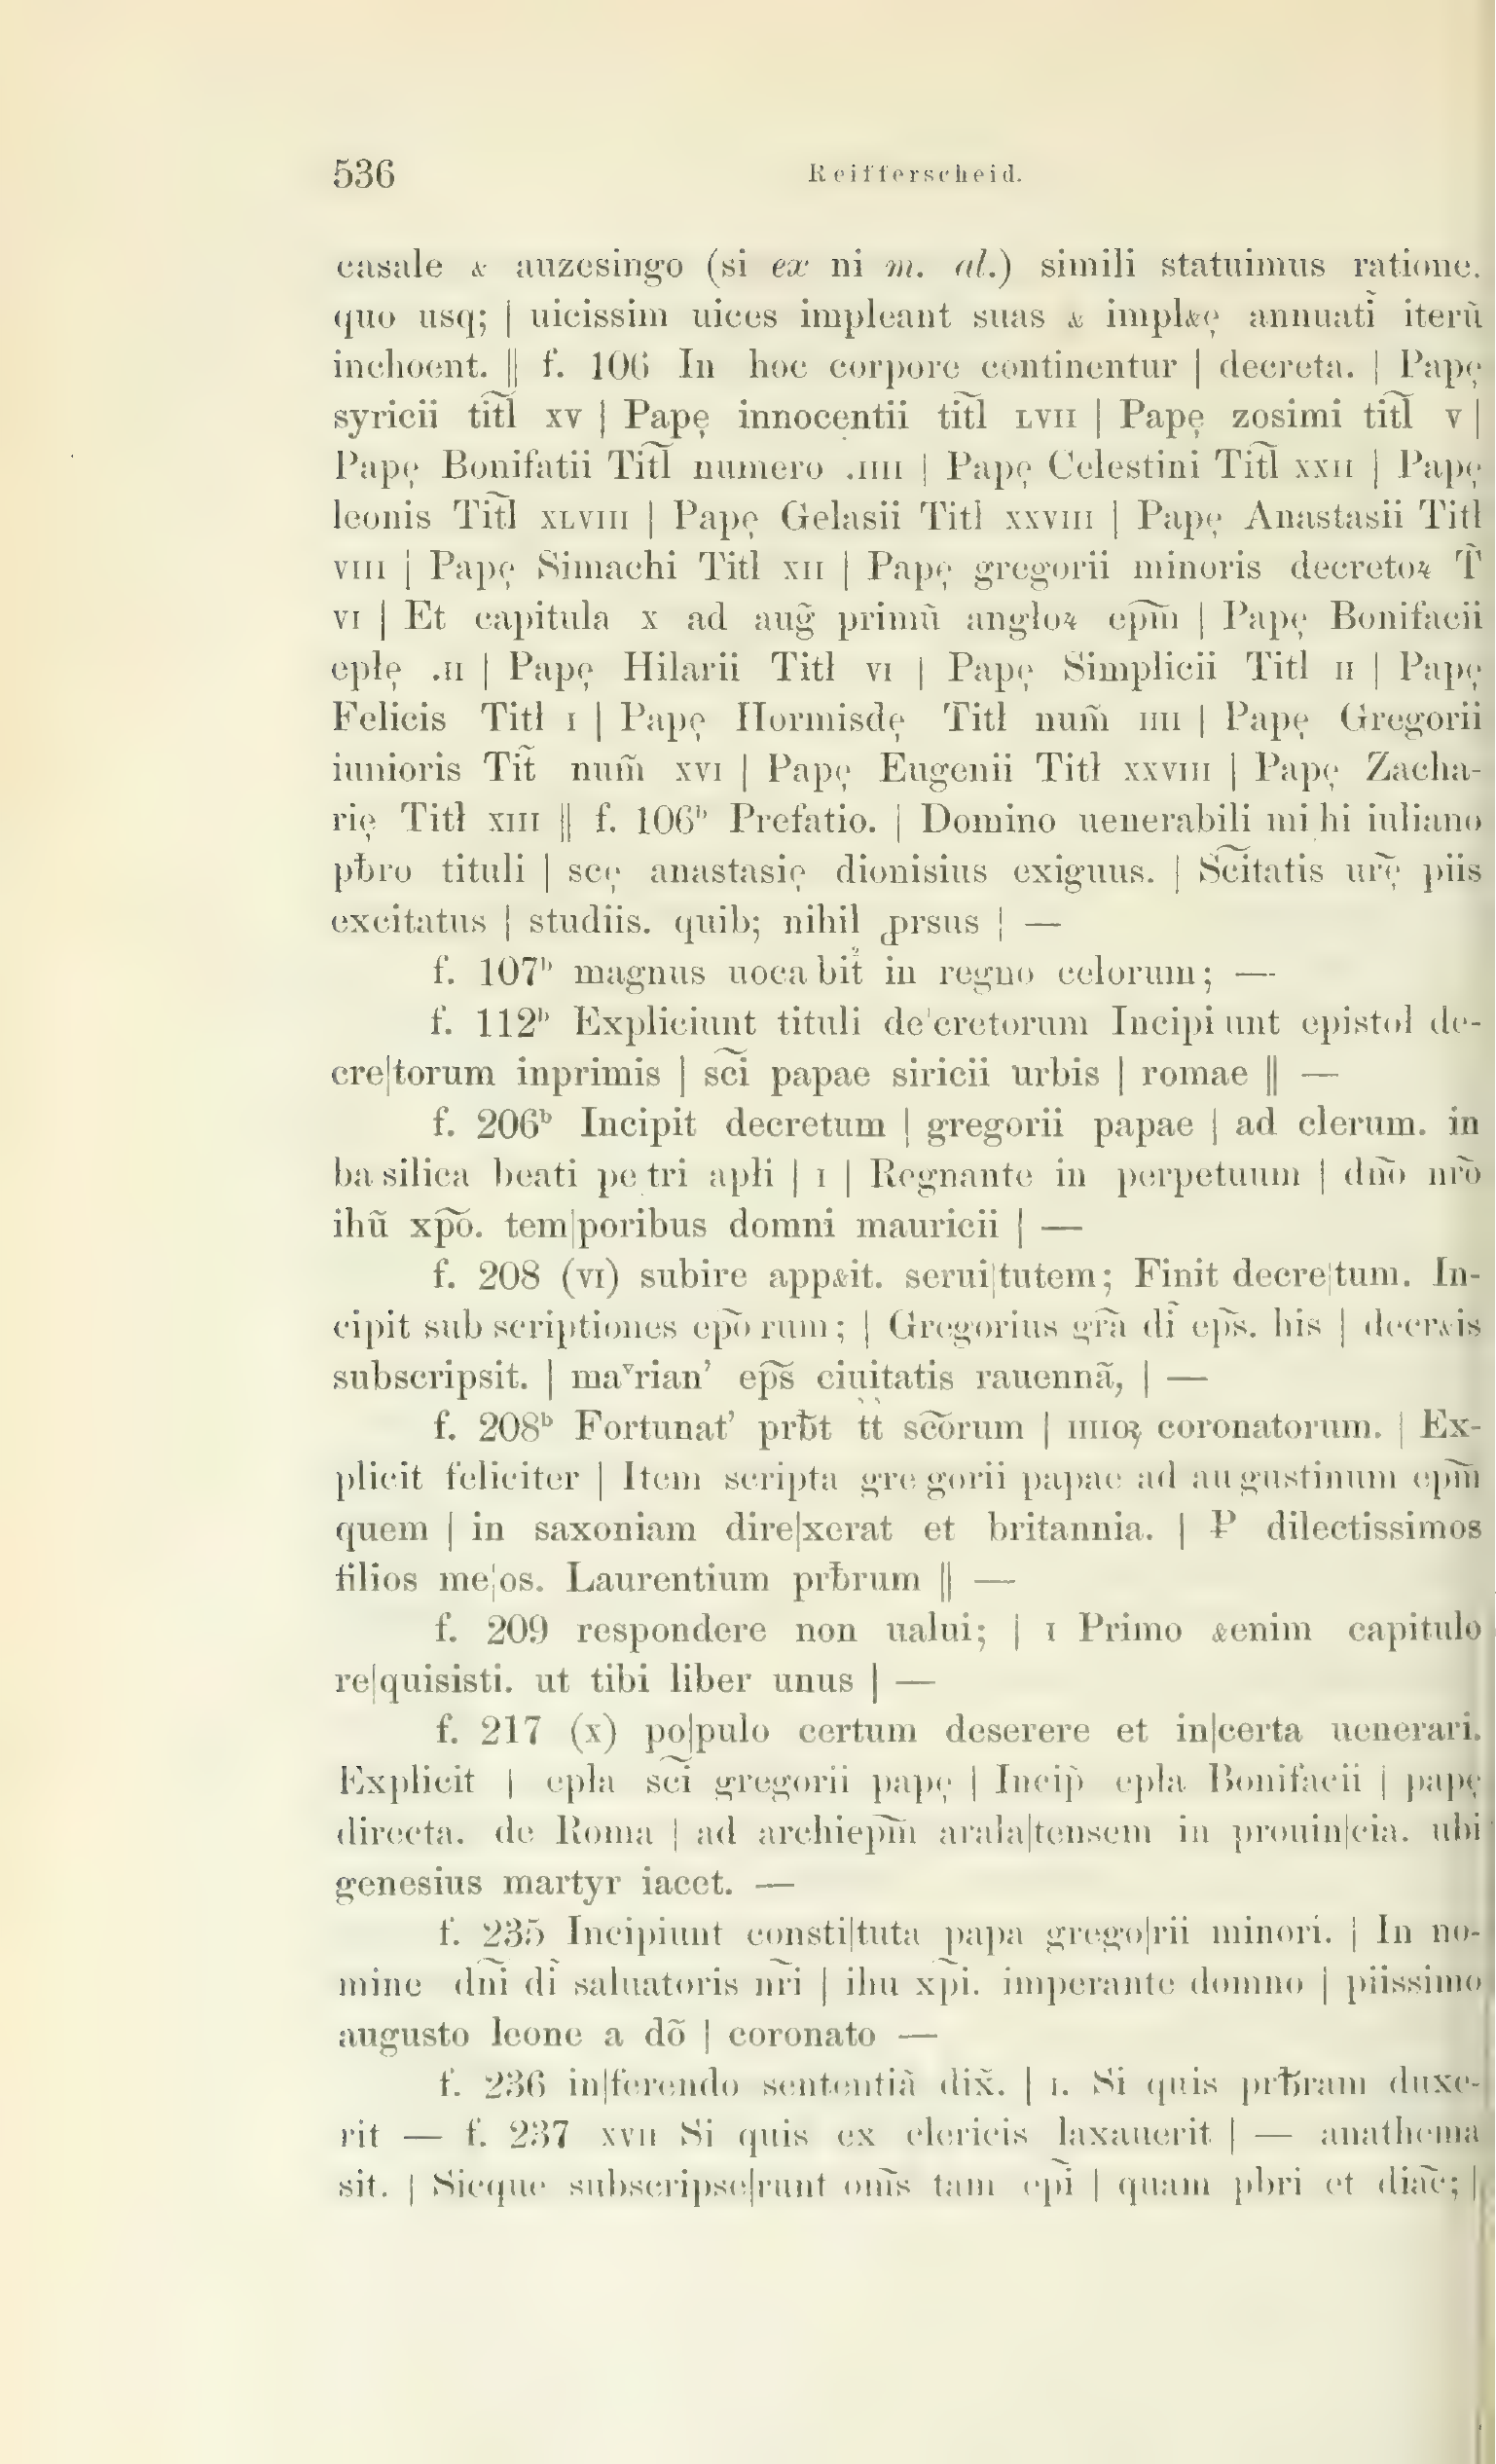 536 Reifferscheid.
casale & auzesingo (si ex ni m. al.) simili statuimus ratione.
quo usq; | uicissim uices impleant suas & impl&ę annuatī iterū
inchoent. || f. 106 In hoc corpore continentur | decreta. | Papę
syricii titl̃ XV | Papę innocentii titl̃ LVII | Papę zosimi titl̃ V |
Papę Bonifatii Titl̃ numero .IIII | Papę Celestini Titl̃ XXII | Papę
leonis Titl̃ XLVIII | Papę Gelasii Titl XXVIII | Papę Anastasii Titl
VIII | Papę Simachi Titl XII | Papę gregorii minoris decretoꝝ T̃
VI | Et capitula X ad aug̃ primū angłoꝝ epm̃ | Papę Bonifacii
epłę .II | Papę Hilarii Titł VI | Papę Simplicii Titł II | Papę
Felicis Titł I | Papę Hormisdę Titł num̃ IIII | Papę Gregorii
iunioris Tit̃ num̃ XVI | Papę Eugenii Titł XXVIII | Papę Zacha-
rię Titł XIII || f. 106ᵇ Prefatio. | Domino uenerabili mi|hi iuliano
pƀro tituli | scę anastasię dionisius exiguus. | Sc̃itatis ur̃ę piis
excitatus | studiis. quib; nihil ꝓrsus | —
f. 107ᵇ magnus uoca|bit̉ in regno celorum; —
f. 112ᵇ Expliciunt tituli de|cretorum Incipi|unt epistoł de-
cre|torum inprimis | sc̃i papae siricii urbis | romae || —
f. 206ᵇ Incipit decretum | gregorii papae | ad clerum. in
ba|silica beati pe|tri apłi | I | Regnante in perpetuum | dño nr̃o
ihũ xp̃o. tem|poribus domni mauricii | —
f. 208 (VI) subire app&it. serui|tutem; Finit decre|tum. In-
cipit sub|scriptiones epõ|rum; | Gregorius gr̃a dī ep̃s. his | decr&is
subscripsit. | maˇrian’ ep̃s ciuitatis rauennã, | —
f. 208ᵇ Fortunat’ prƀt tt sc̃orum | IIIIoꝝ coronatorum. | Ex-
plicit feliciter | Item scripta gre|gorii papae ad au|gustinum epm̃
quem | in saxoniam dire|xerat et britannia. | ₽ dilectissimos
filios me|os. Laurentium prƀrum || —
f. 209 respondere non ualui; | I Primo &enim capitulo
re|quisisti. ut tibi liber unus | —
f. 217 (X) po|pulo certum deserere et in|certa uenerari.
Explicit | epła sc̃i gregorii papę | Incip̃ epła Bonifacii | papę
directa. de Roma | ad archiepm̃ arala|tensem in prouin|cia. ubi
genesius martyr iacet. —
f. 235 Incipiunt consti|tuta papa grego|rii minori. | In no-
mine dñi dī saluatoris nr̃i | ihu xp̃i. imperante domno | piissimo
augusto leone a dõ | coronato —
f. 236 in|ferendo sententiã dix̃. | I. Si quis prƀram duxe-
rit — f. 237 XVII Si quis ex clericis laxauerit | — anathema
sit. | Sicque subscripse|runt om̃s tam ep̃i | quam pbri et diac̃; |